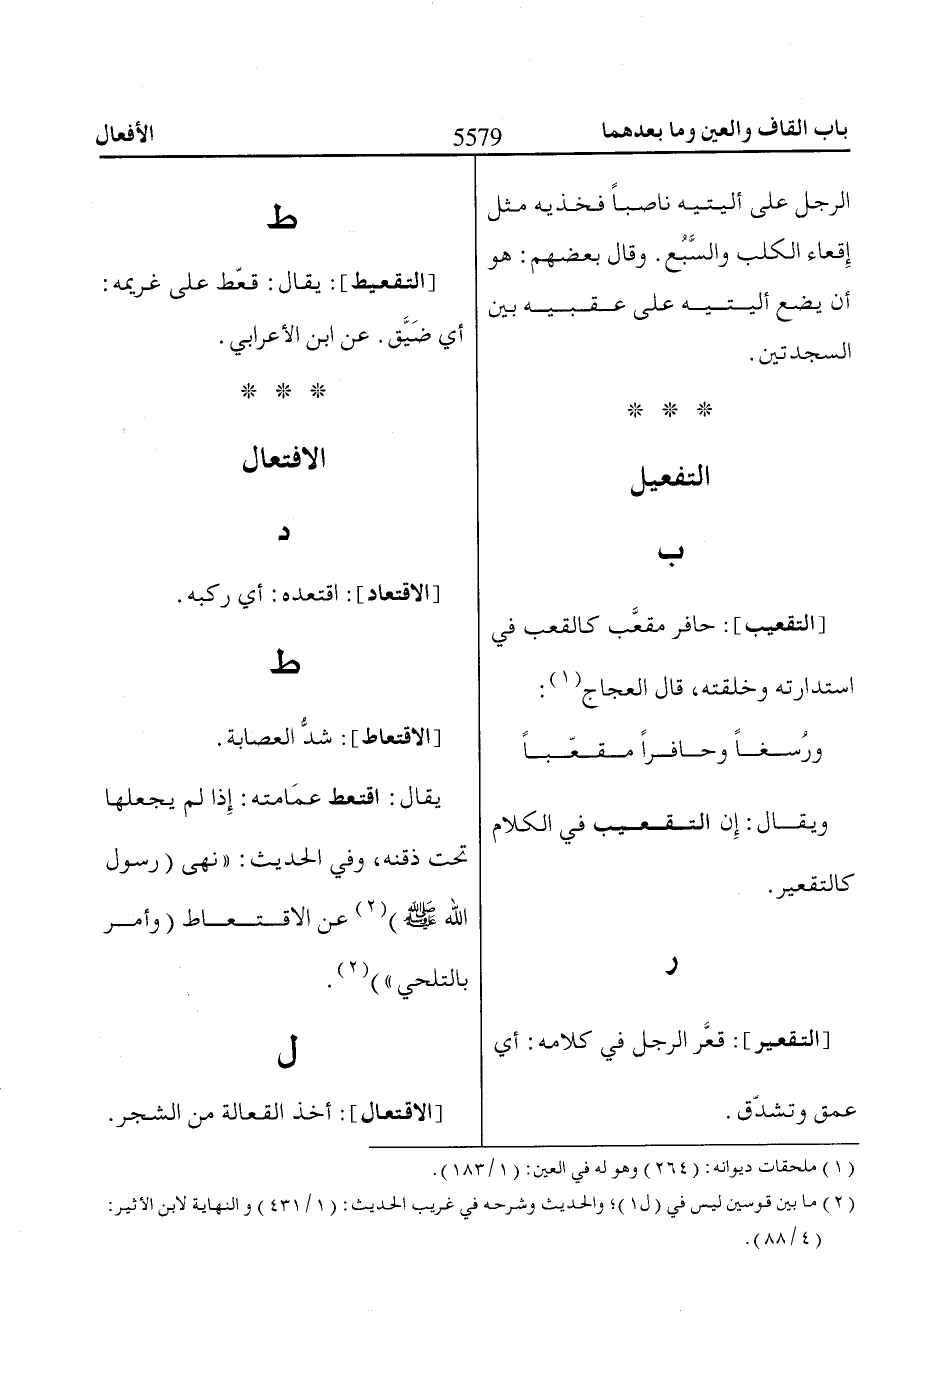 باب القاف والعين وما بعدهما
5579
الأفعال
الرجل على أليتيه ناصباً فخذيه مثل
إقعاء الكلب والسَّبُع. وقال بعضهم: هو
أن يضع أليتيه على عقبيه بين
السجدتين.
* * *
التفعيل
ب
[التقعيب]: حافر مقعَّب كالقعب في
استدارته وخلقته، قال العجاج(١):
ورُسغاً وحافراً مقعّباً
ويقال: إن التقعيب في الكلام
كالتقعير.
ر
[التقعير]: قعَّر الرجل في كلامه: أي
عمق وتشدّق.
ط
[التقعيط]: يقال: قعّط على غريمه:
أي ضَيَّق. عن ابن الأعرابي.
* * *
الافتعال
د
[الاقتعاد]: اقتعده: أي ركبه.
ط
[الاقتعاط]: شدُّ العصابة.
يقال: اقتعط عمَامته: إذا لم يجعلها
تحت ذقنه، وفي الحديث: «نهى (رسول
الله ﷺ)(٢) عن الاقتعاط (وأمر
بالتلحي»)(٢).
ل
[الاقتعال]: أخذ القعالة من الشجر.
(١) ملحقات ديوانه: (٢٦٤) وهو له في العين: (١/١٨٣).
(٢) ما بين قوسين ليس في (ل١)؛ والحديث وشرحه في غريب الحديث: (١/٤٣١) و النهاية لابن الأثير:
(٤/٨٨).